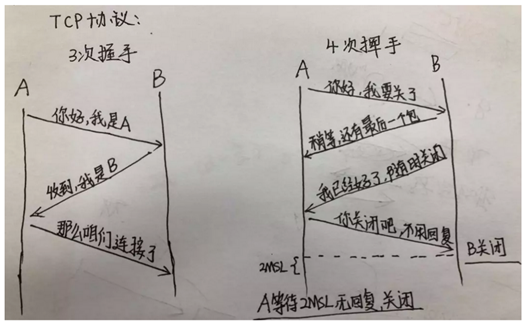 TCP协议:
3次握手
A
B
你好,我是A
收到,我是B
那么咱们连接了
4次挥手
A
B
你好,我要关了
稍等,还有最后一个包
我已经好了,随时关闭
你关闭吧,不用回复
2MSL
B关闭
A等待2MSL无回复,关闭